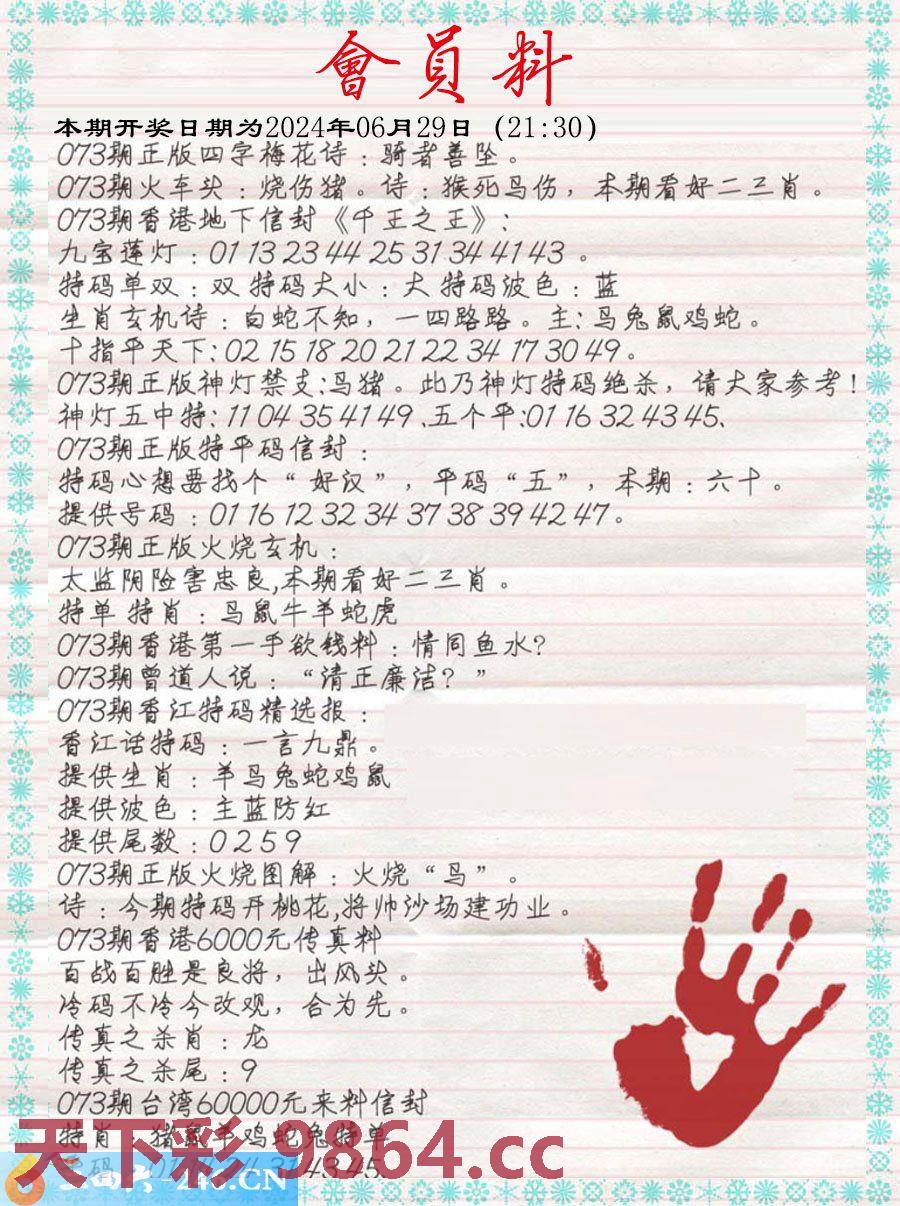 會員料
本期开奖日期为2024年06月29日 (21:30)
073期正版四字梅花诗：骑者善坠。
073期火车头：烧伤猪。诗：猴死鸟伤，本期看好二三肖。
073期香港地下信封《千王之王》:
九宝莲灯：01 13 23 44 25 31 34 41 43 。
特码单双：双 特码大小：大 特码波色：蓝
生肖玄机诗：白蛇不知，一四路路。主: 马兔鼠鸡蛇。
十指平天下: 02 15 18 20 21 22 34 17 30 49。
073期正版神灯禁支:马猪。此乃神灯特码绝杀，请大家参考！
神灯五中特: 11 04 35 41 49 .五个平:01 16 32 43 45.
073期正版特平码信封：
特码心想要找个“好汉”，平码“五”，本期：六十。
提供号码：01 16 12 32 34 37 38 39 42 47。
073期正版火烧玄机：
太监阴险害忠良,本期看好二三肖。
特单 特肖：马鼠牛羊蛇虎
073期香港第一手欲钱料：情同鱼水?
073期曾道人说：“清正廉洁？”
073期香江特码精选报：
香江话特码：一言九鼎。
提供生肖：羊马兔蛇鸡鼠
提供波色：主蓝防红
提供尾数：0 2 5 9
073期正版火烧图解：火烧“鸟”。
诗：今期特码开桃花,将帅沙场建功业。
073期香港6000元传真料
百战百胜是良将，出风头。
冷码不冷今改观，合为先。
传真之杀肖：龙
传真之杀尾：9
073期台湾60000元来料信封
特肖：猪鼠羊鸡蛇兔特单
31 43 45.
天下彩 9864.cc
246.CN